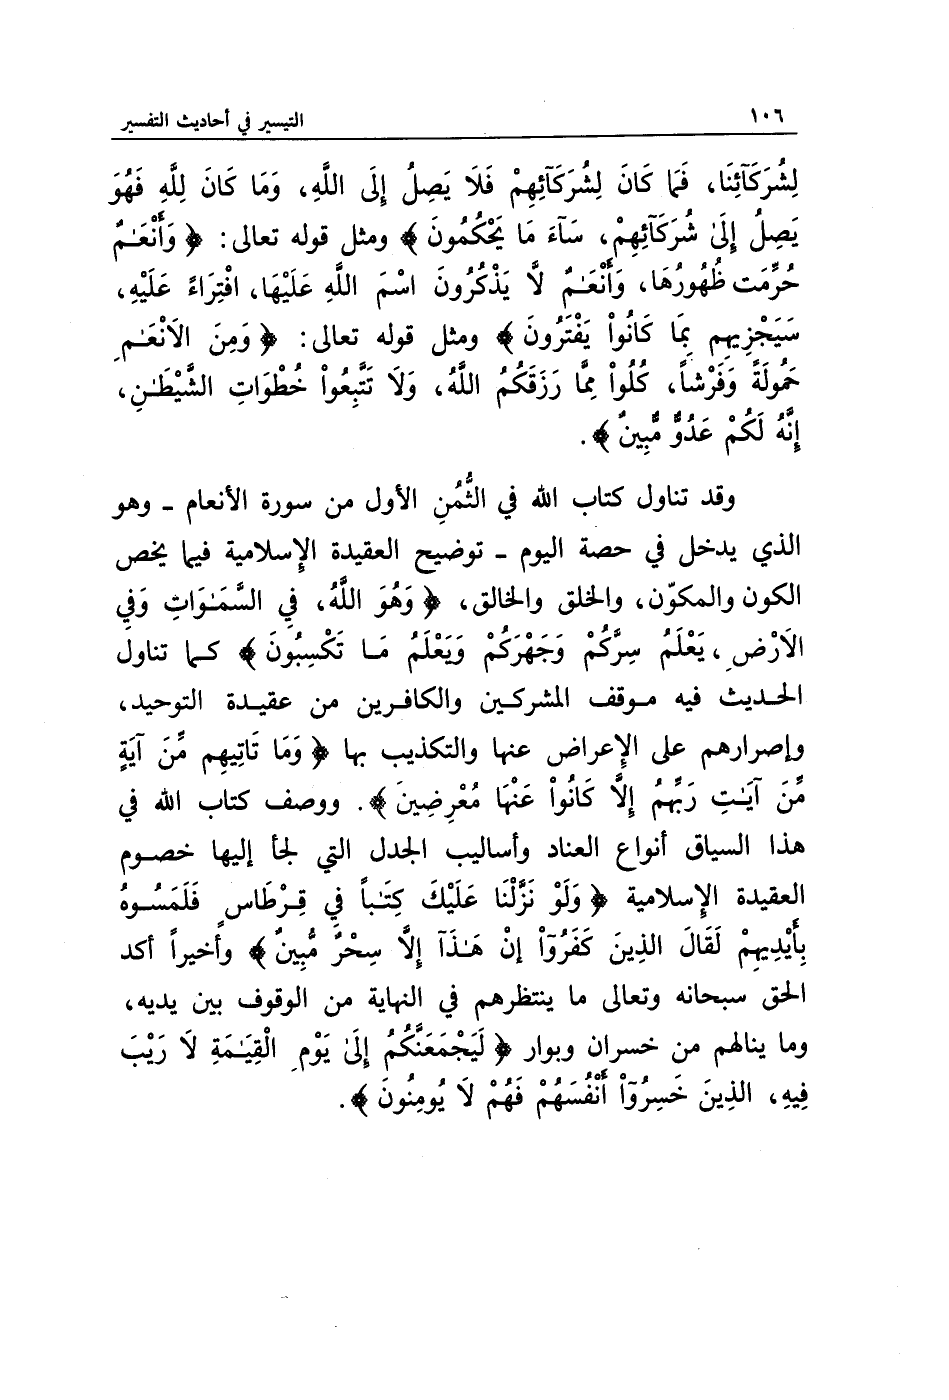 ١٠٦ التيسير في أحاديث التفسير
لِشُرَكَآئِنَا، فَمَا كَانَ لِشُرَكَآئِهِمْ فَلَا يَصِلُ إِلَى اللَّهِ، وَمَا كَانَ لِلَّهِ فَهُوَ
يَصِلُ إِلَىٰ شُرَكَآئِهِمْ، سَآءَ مَا يَحْكُمُونَ﴾ ومثل قوله تعالى: ﴿وَأَنْعَـٰمٌ
حُرِّمَت ظُهُورُهَا، وَأَنْعَـٰمٌ لَّا يَذْكُرُونَ اسْمَ اللَّهِ عَلَيْهَا، افْتِرَاءً عَلَيْهِ،
سَيَجْزِيهِم بِمَا كَانُواْ يَفْتَرُونَ﴾ ومثل قوله تعالى: ﴿وَمِنَ الَانْعَـٰمِ
حَمُولَةً وَفَرْشاً، كُلُواْ مِمَّا رَزَقَكُمُ اللَّهُ، وَلَا تَتَّبِعُواْ خُطْوَاتِ الشَّيْطَـٰنِ،
إِنَّهُ لَكُمْ عَدُوٌّ مُّبِينٌ﴾.
وقد تناول كتاب الله في الثُّمُنِ الأول من سورة الأنعام ـ وهو
الذي يدخل في حصة اليوم ـ توضيح العقيدة الإسلامية فيما يخص
الكون والمكوّن، والخلق والخالق، ﴿وَهُوَ اللَّهُ، فِي السَّمَـٰوَاتِ وَفِي
الَارْضِ، يَعْلَمُ سِرَّكُمْ وَجَهْرَكُمْ وَيَعْلَمُ مَا تَكْسِبُونَ﴾ كما تناول
الحديث فيه موقف المشركين والكافرين من عقيدة التوحيد،
وإصرارهم على الإعراض عنها والتكذيب بها ﴿وَمَا تَاتِيهِم مِّنَ آيَةٍ
مِّنَ آيَـٰتِ رَبِّهِمُ إِلَّا كَانُواْ عَنْهَا مُعْرِضِينَ﴾. ووصف كتاب الله في
هذا السياق أنواع العناد وأساليب الجدل التي لجأ إليها خصوم
العقيدة الإسلامية ﴿وَلَوْ نَزَّلْنَا عَلَيْكَ كِتَـٰباً فِي قِرْطَاسٍ فَلَمَسُوهُ
بِأَيْدِيهِمْ لَقَالَ الذِينَ كَفَرُوٓاْ إِنْ هَـٰذَآ إِلَّا سِحْرٌ مُّبِينٌ﴾ وأخيراً أكد
الحق سبحانه وتعالى ما ينتظرهم في النهاية من الوقوف بين يديه،
وما ينالهم من خسران وبوار ﴿لَيَجْمَعَنَّكُمُ إِلَىٰ يَوْمِ الْقِيَـٰمَةِ لَا رَيْبَ
فِيهِ، الذِينَ خَسِرُوٓاْ أَنْفُسَهُمْ فَهُمْ لَا يُومِنُونَ﴾.